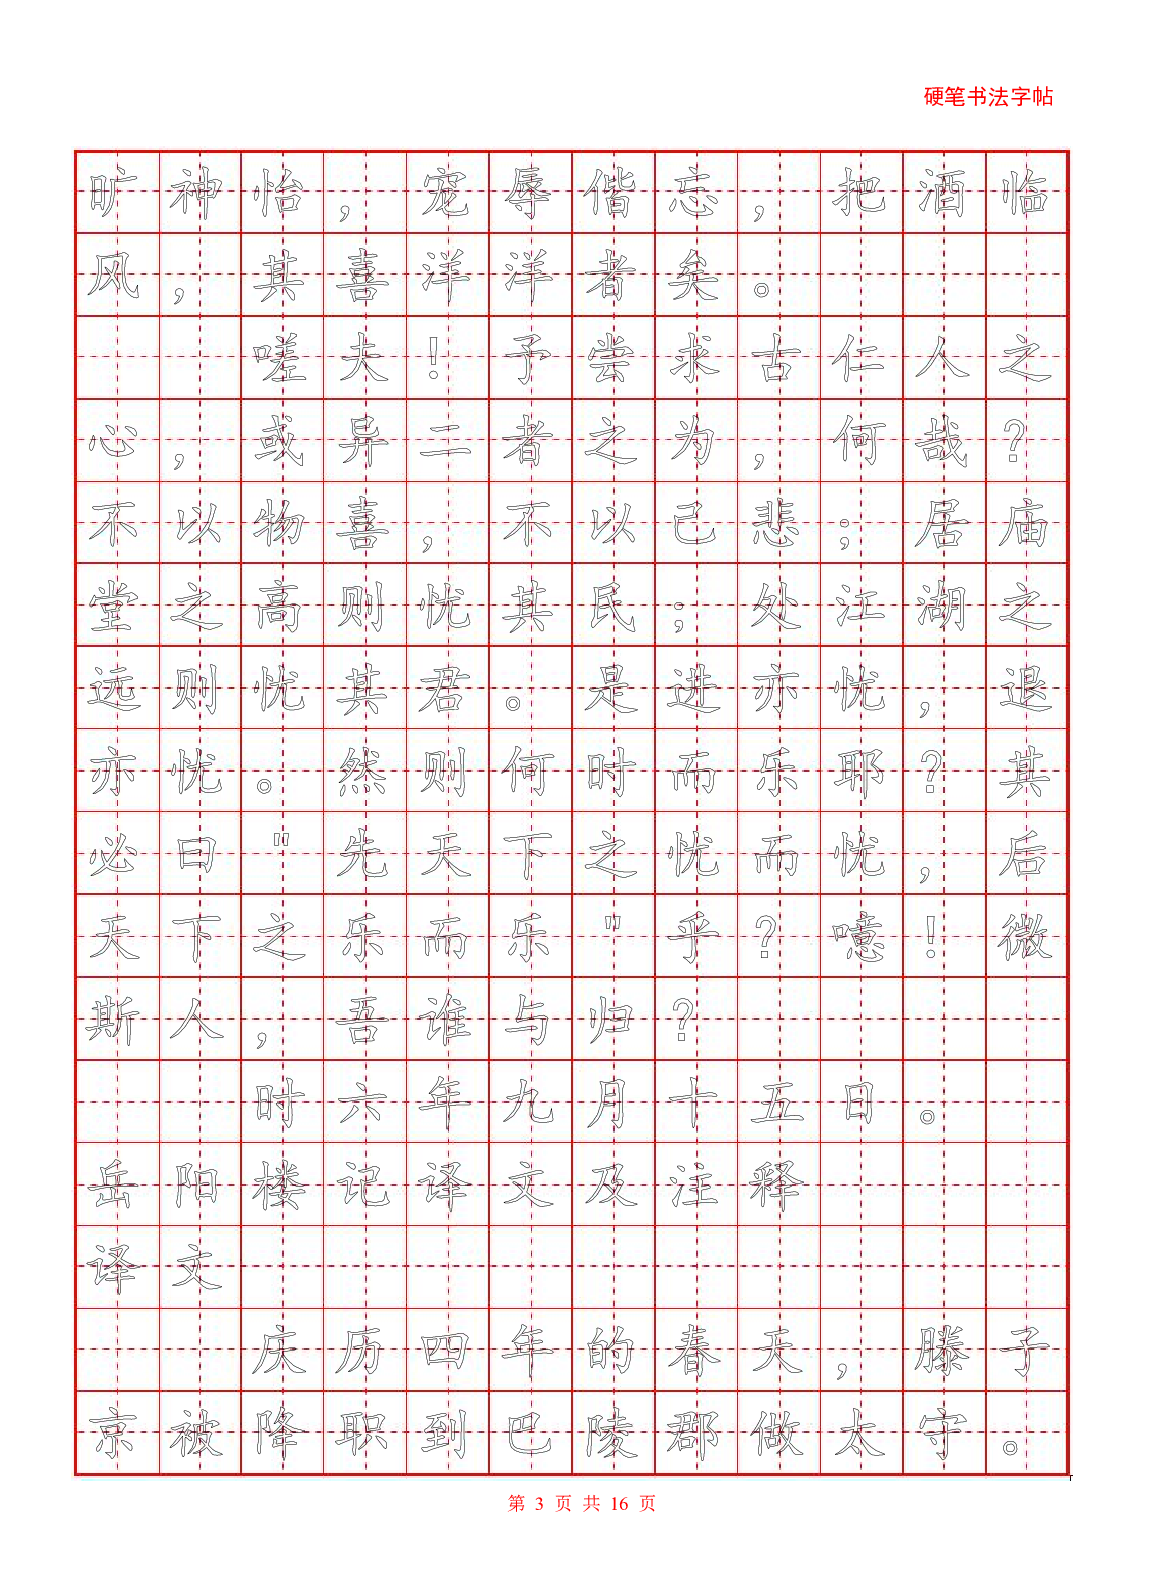 硬笔书法字帖
旷神怡，宠辱偕忘，把酒临
风，其喜洋洋者矣。
嗟夫！予尝求古仁人之
心，或异二者之为，何哉？
不以物喜，不以己悲；居庙
堂之高则忧其民；处江湖之
远则忧其君。是进亦忧，退
亦忧。然则何时而乐耶？其
必曰"先天下之忧而忧，后
天下之乐而乐"乎？噫！微
斯人，吾谁与归？
时六年九月十五日。
岳阳楼记译文及注释
译文
庆历四年的春天，滕子
京被降职到巴陵郡做太守。
第 3 页 共 16 页